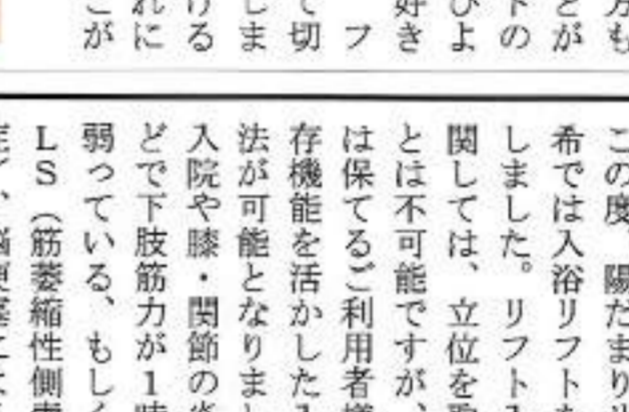 方も
とが
トの
ひよ
好き
フ
て切
しま
ける
れに
こが
この度、陽だまり
希では入浴リフトを
しました。リフト
関しては、立位を
とは不可能ですが、
は保てるご利用者様
存機能を活かした入
法が可能となりまし
入院や膝・関節の
どで下肢筋力が1
弱っている、もしく
LS（筋萎縮性側索